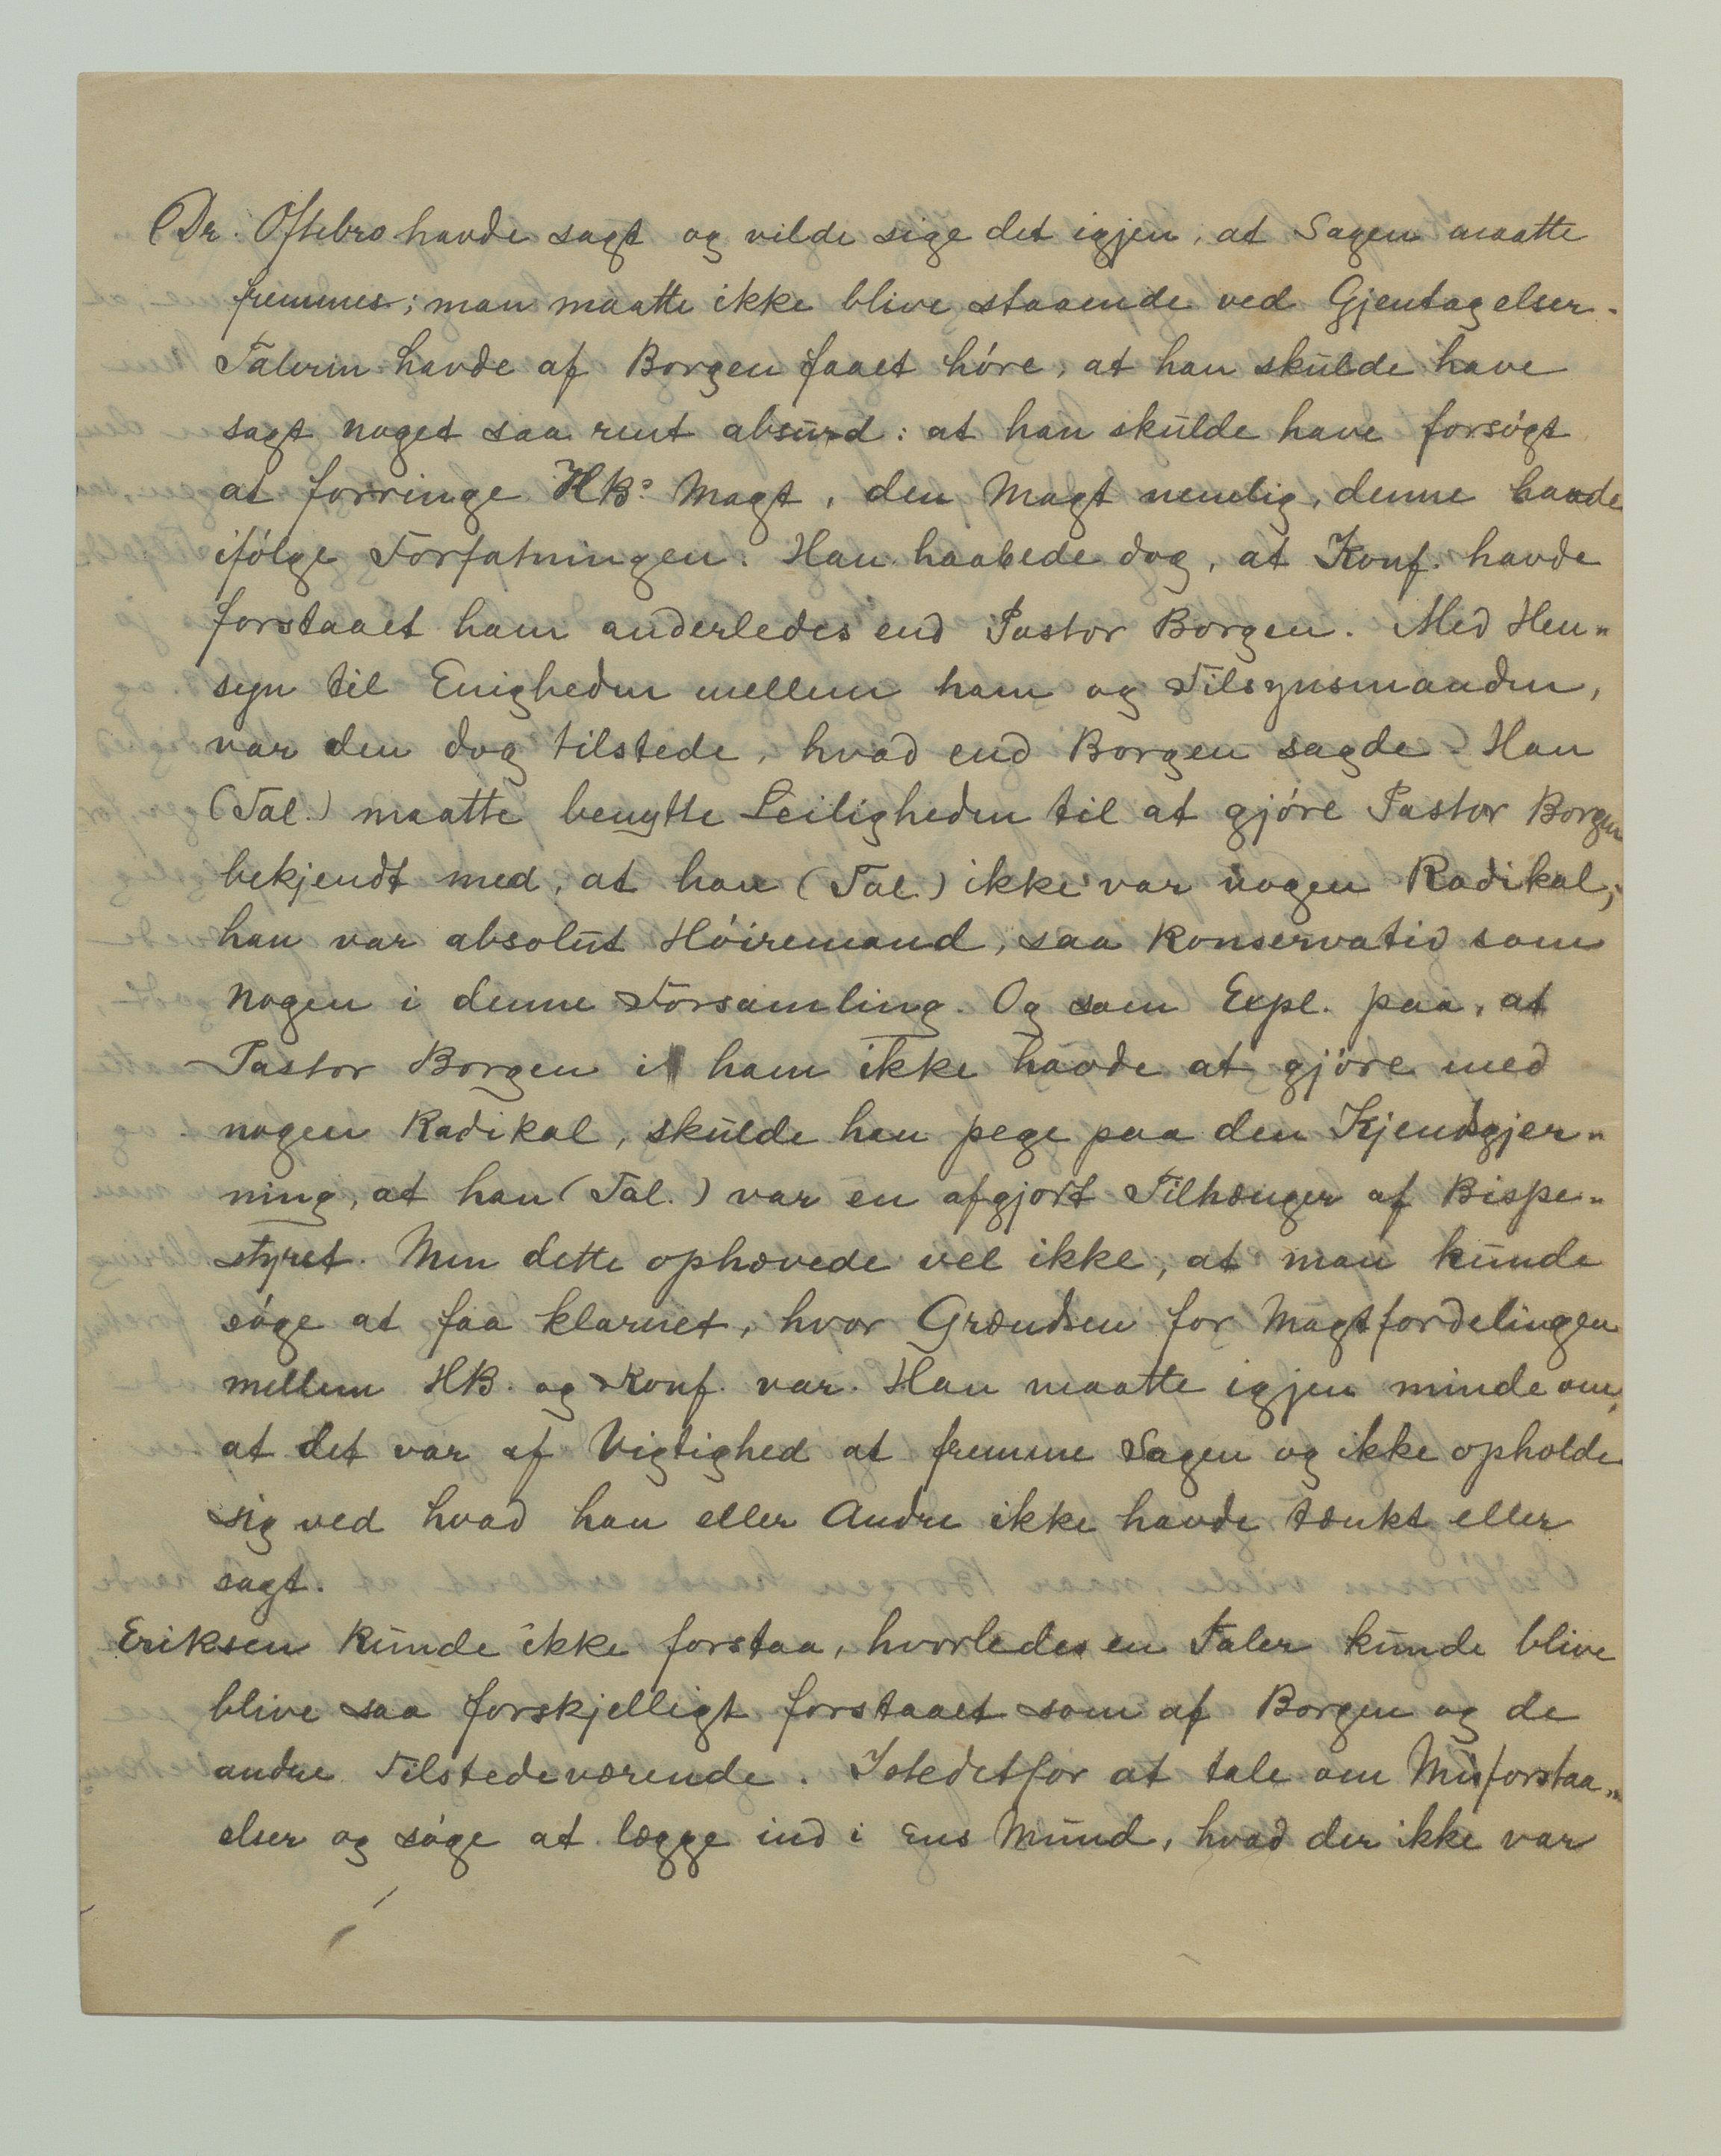 Dr. Oftebro havde sagt og vilde sige det igjen, at Sagen maatte
fremmes; man maatte ikke blive staaende ved Gjentagelser.
Taleren havde af Borgen faaet høre, at han skulde have
sagt noget saa rent absurd: at han skulde have forsøgt
at forringe HBs Magt, den Magt nemlig, denne havde
ifølge Forfatningen. Han haabede dog, at Konf. havde
forstaaet ham anderledes end Pastor Borgen. Med Hen-
syn til Enigheden mellem ham og Tilsynsmanden,
var den dog tilstede, hvad end Borgen sagde. Han
(Tal.) maatte benytte Leiligheden til at gjøre Pastor Borgen
bekjendt med, at han (Tal.) ikke var nogen Radikal,
han var absolut Høiremand, saa konservativ som
nogen i denne Forsamling. Og som Expl. paa, at
Pastor Borgen i ham ikke havde at gjøre med
nogen Radikal, skulde han pege paa den Kjendsgjer-
ning, at han (Tal.) var en afgjort Tilhænger af Bispe-
styret. Men dette ophævede vel ikke, at man kunde
søge at faa klarnet, hvor Grændsen for Magtfordelingen
mellem HB. og Konf. var. Han maatte igjen minde om,
at det var af Vigtighed at fremme Sagen og ikke opholde
sig ved hvad han eller Andre ikke havde tænkt eller
sagt.
Eriksen kunde ikke forstaa, hvorledes en Taler kunde blive
blive saa forskjelligt forstaaet som af Borgen og de
andre Tilstedeværende. Istedetfor at tale om Misforstaa-
elser og søge at lægge ind i Ens Mund, hvad der ikke var